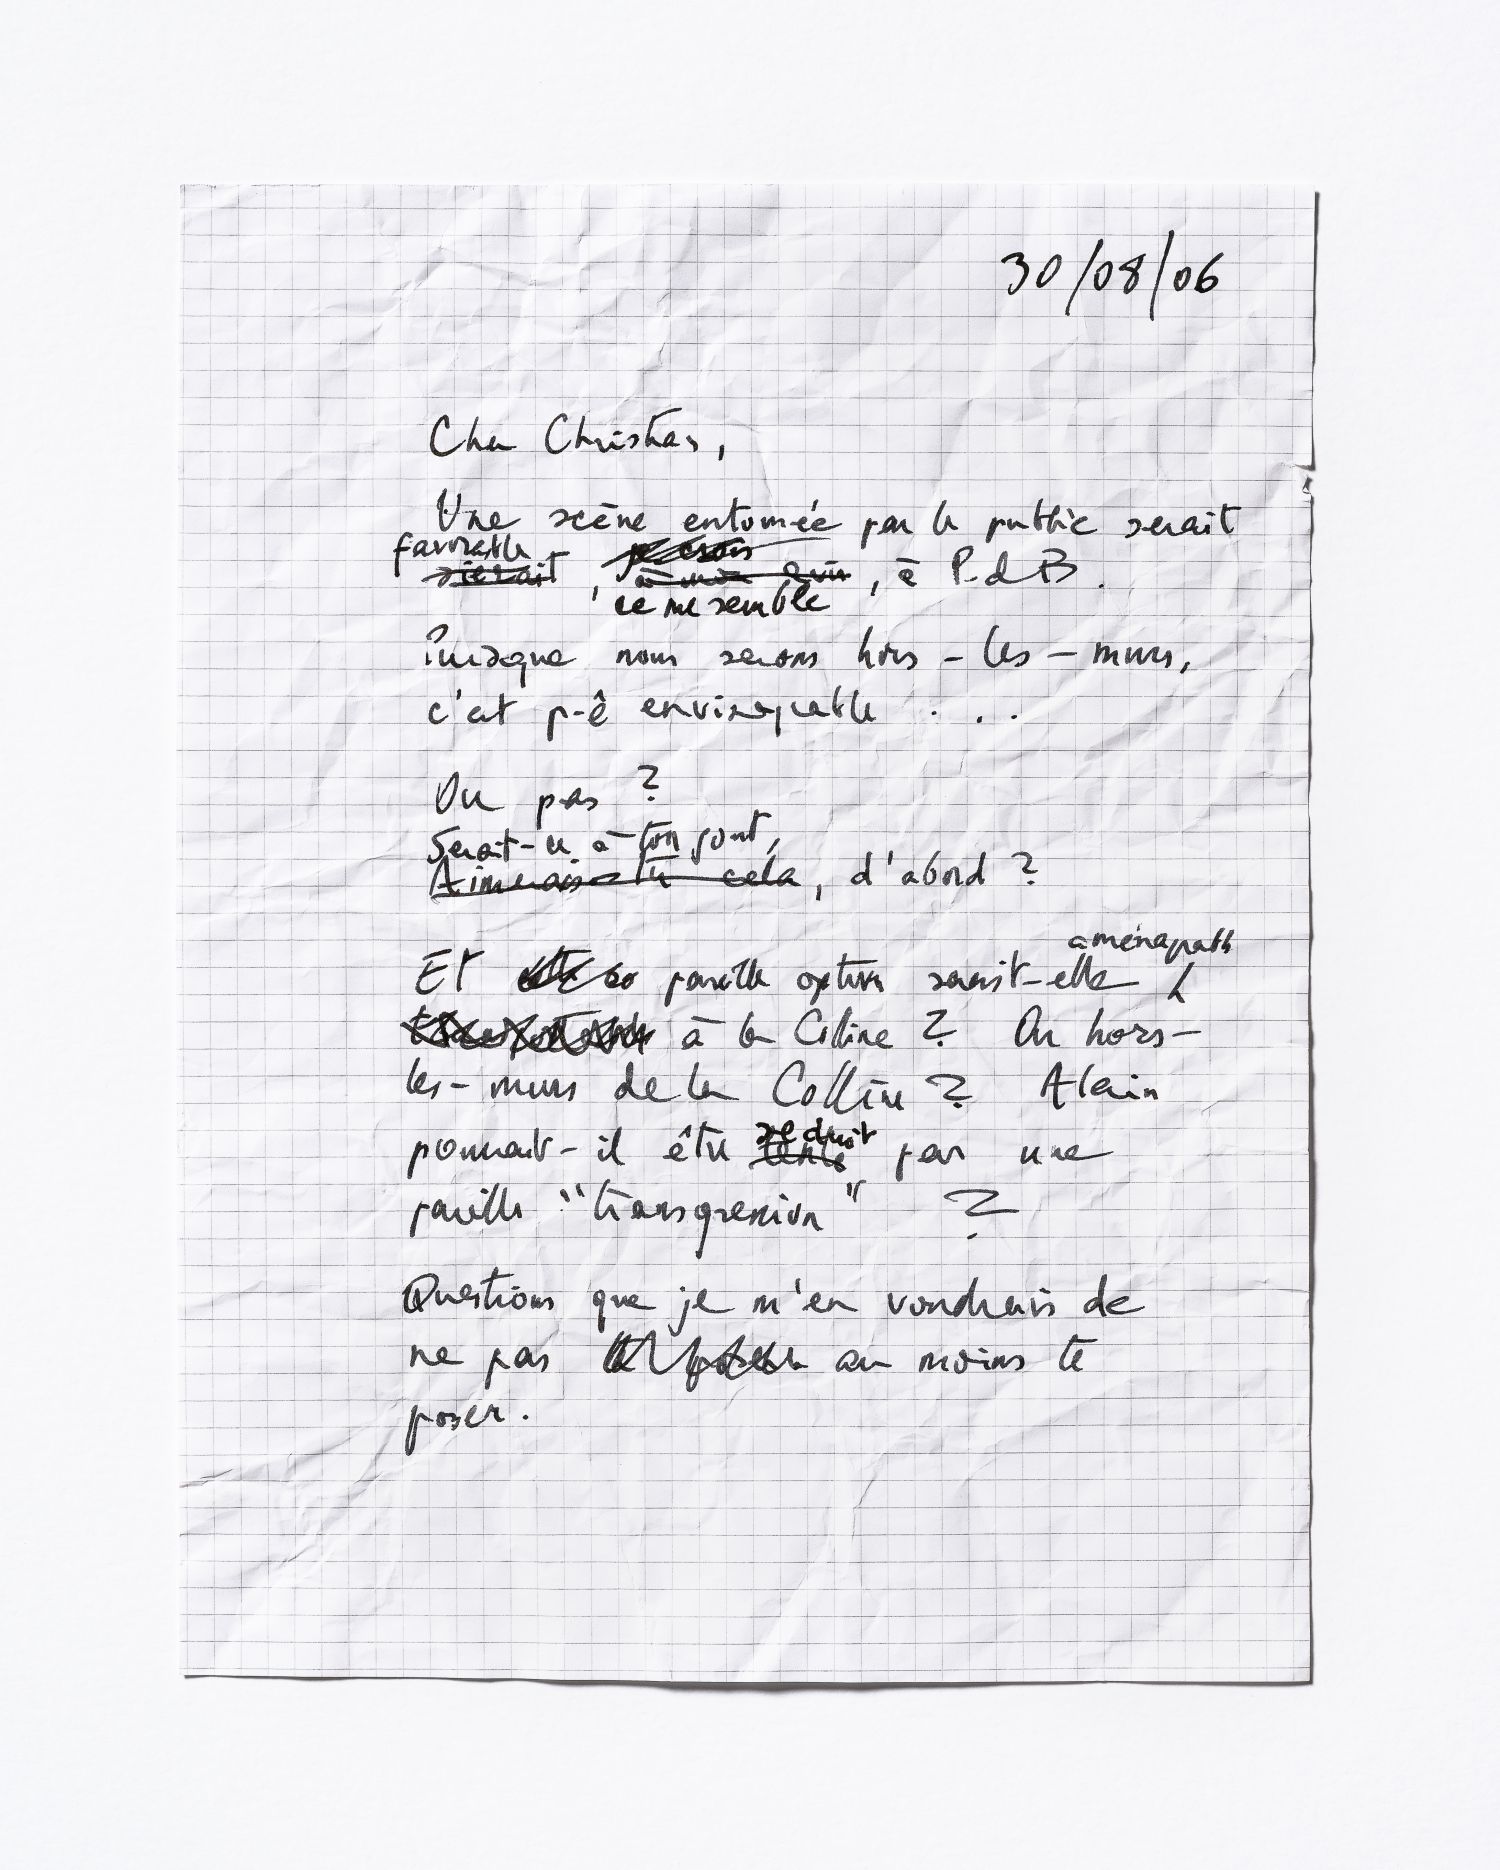 30/08/06
Cher Christian,
Une scène entourée par le public serait
favorable je crois
siérait, à mon avis, à P. d B.
ce me semble
Puisque nous serons hors-les-murs,
c'est p-ê envisageable...
Ou pas ?
Serait-ce à ton goût,
Aimerais-tu cela, d'abord ?
aménageable
Et pareille option serait-elle
à la Colline ? Ou hors-
les-murs de la Colline ? Alain
séduit
pourrait-il être tenté par une
pareille "transgression" ?
Questions que je m'en voudrais de
ne pas au moins te
poser.